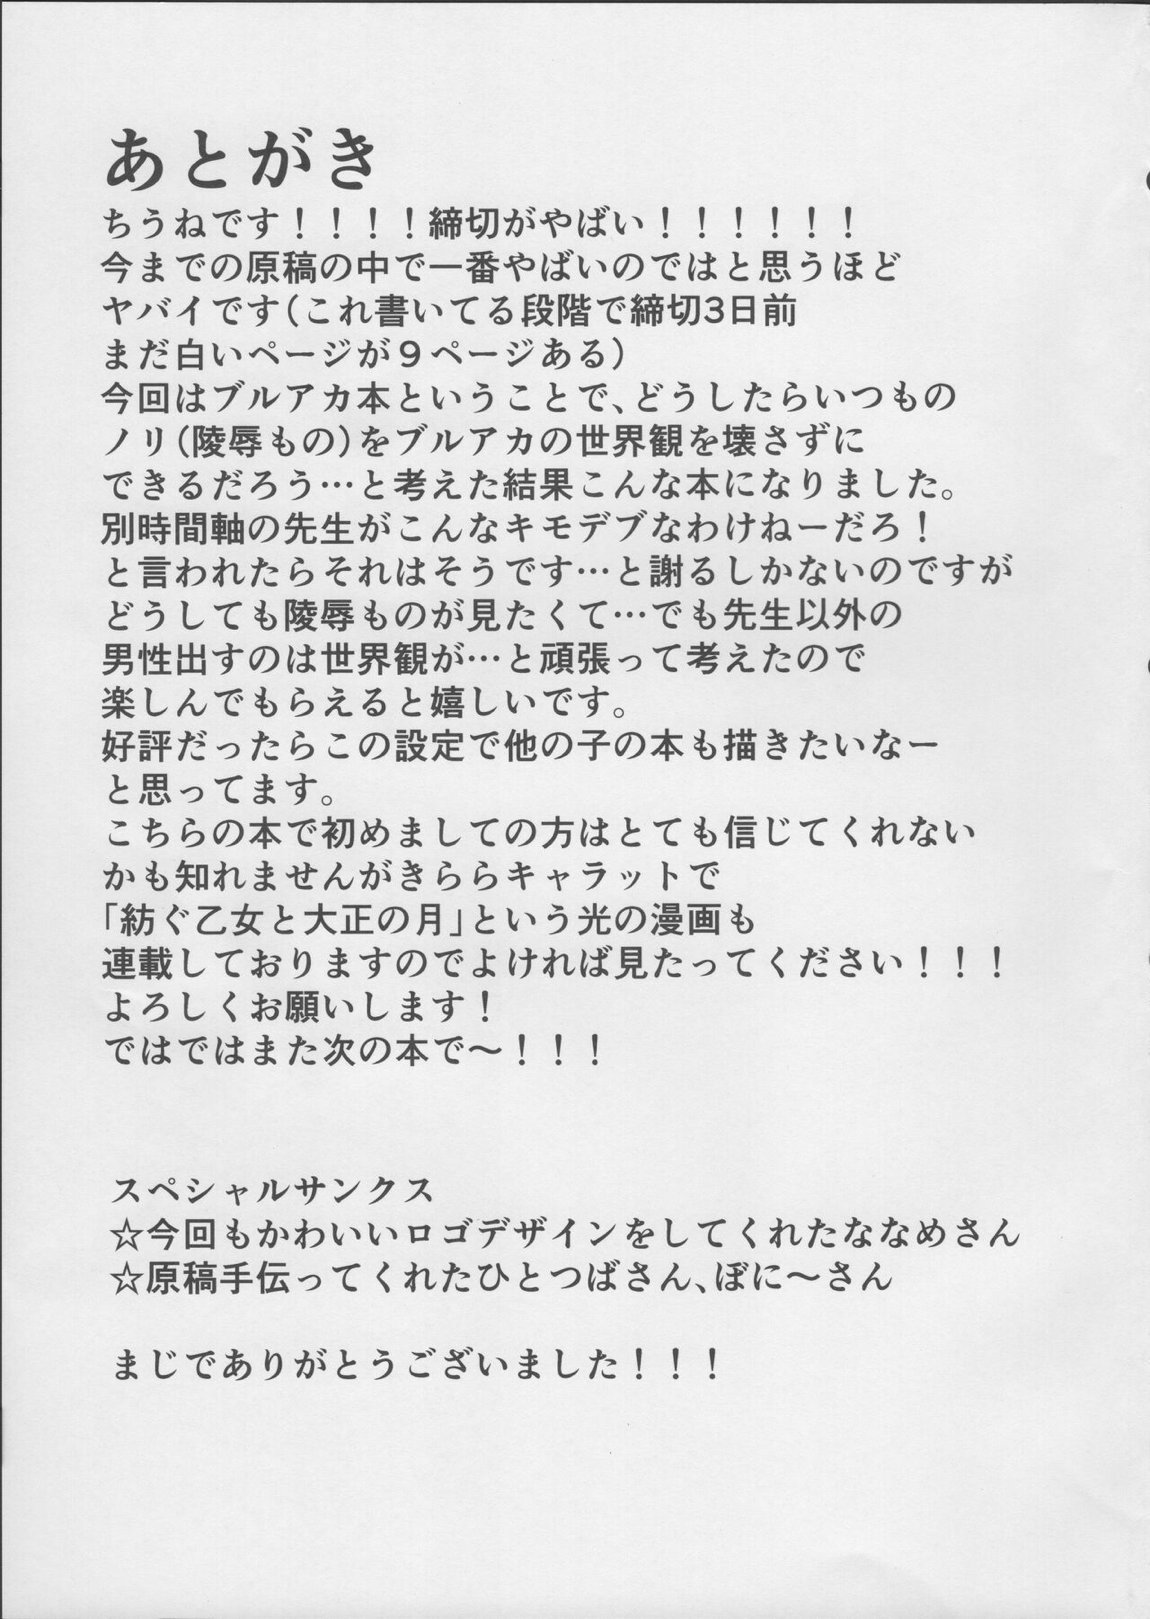 あとがき
ちうねです！！！！締切がやばい！！！！！！
今までの原稿の中で一番やばいのではと思うほど
ヤバイです（これ書いてる段階で締切3日前
まだ白いページが９ページある）
今回はブルアカ本ということで、どうしたらいつもの
ノリ（陵辱もの）をブルアカの世界観を壊さずに
できるだろう…と考えた結果こんな本になりました。
別時間軸の先生がこんなキモデブなわけねーだろ！
と言われたらそれはそうです…と謝るしかないのですが
どうしても陵辱ものが見たくて…でも先生以外の
男性出すのは世界観が…と頑張って考えたので
楽しんでもらえると嬉しいです。
好評だったらこの設定で他の子の本も描きたいなー
と思ってます。
こちらの本で初めましての方はとても信じてくれない
かも知れませんがきららキャラットで
「紡ぐ乙女と大正の月」という光の漫画も
連載しておりますのでよければ見たってください！！！
よろしくお願いします！
ではではまた次の本で～！！！
スペシャルサンクス
☆今回もかわいいロゴデザインをしてくれたななめさん
☆原稿手伝ってくれたひとつばさん、ぼに～さん
まじでありがとうございました！！！